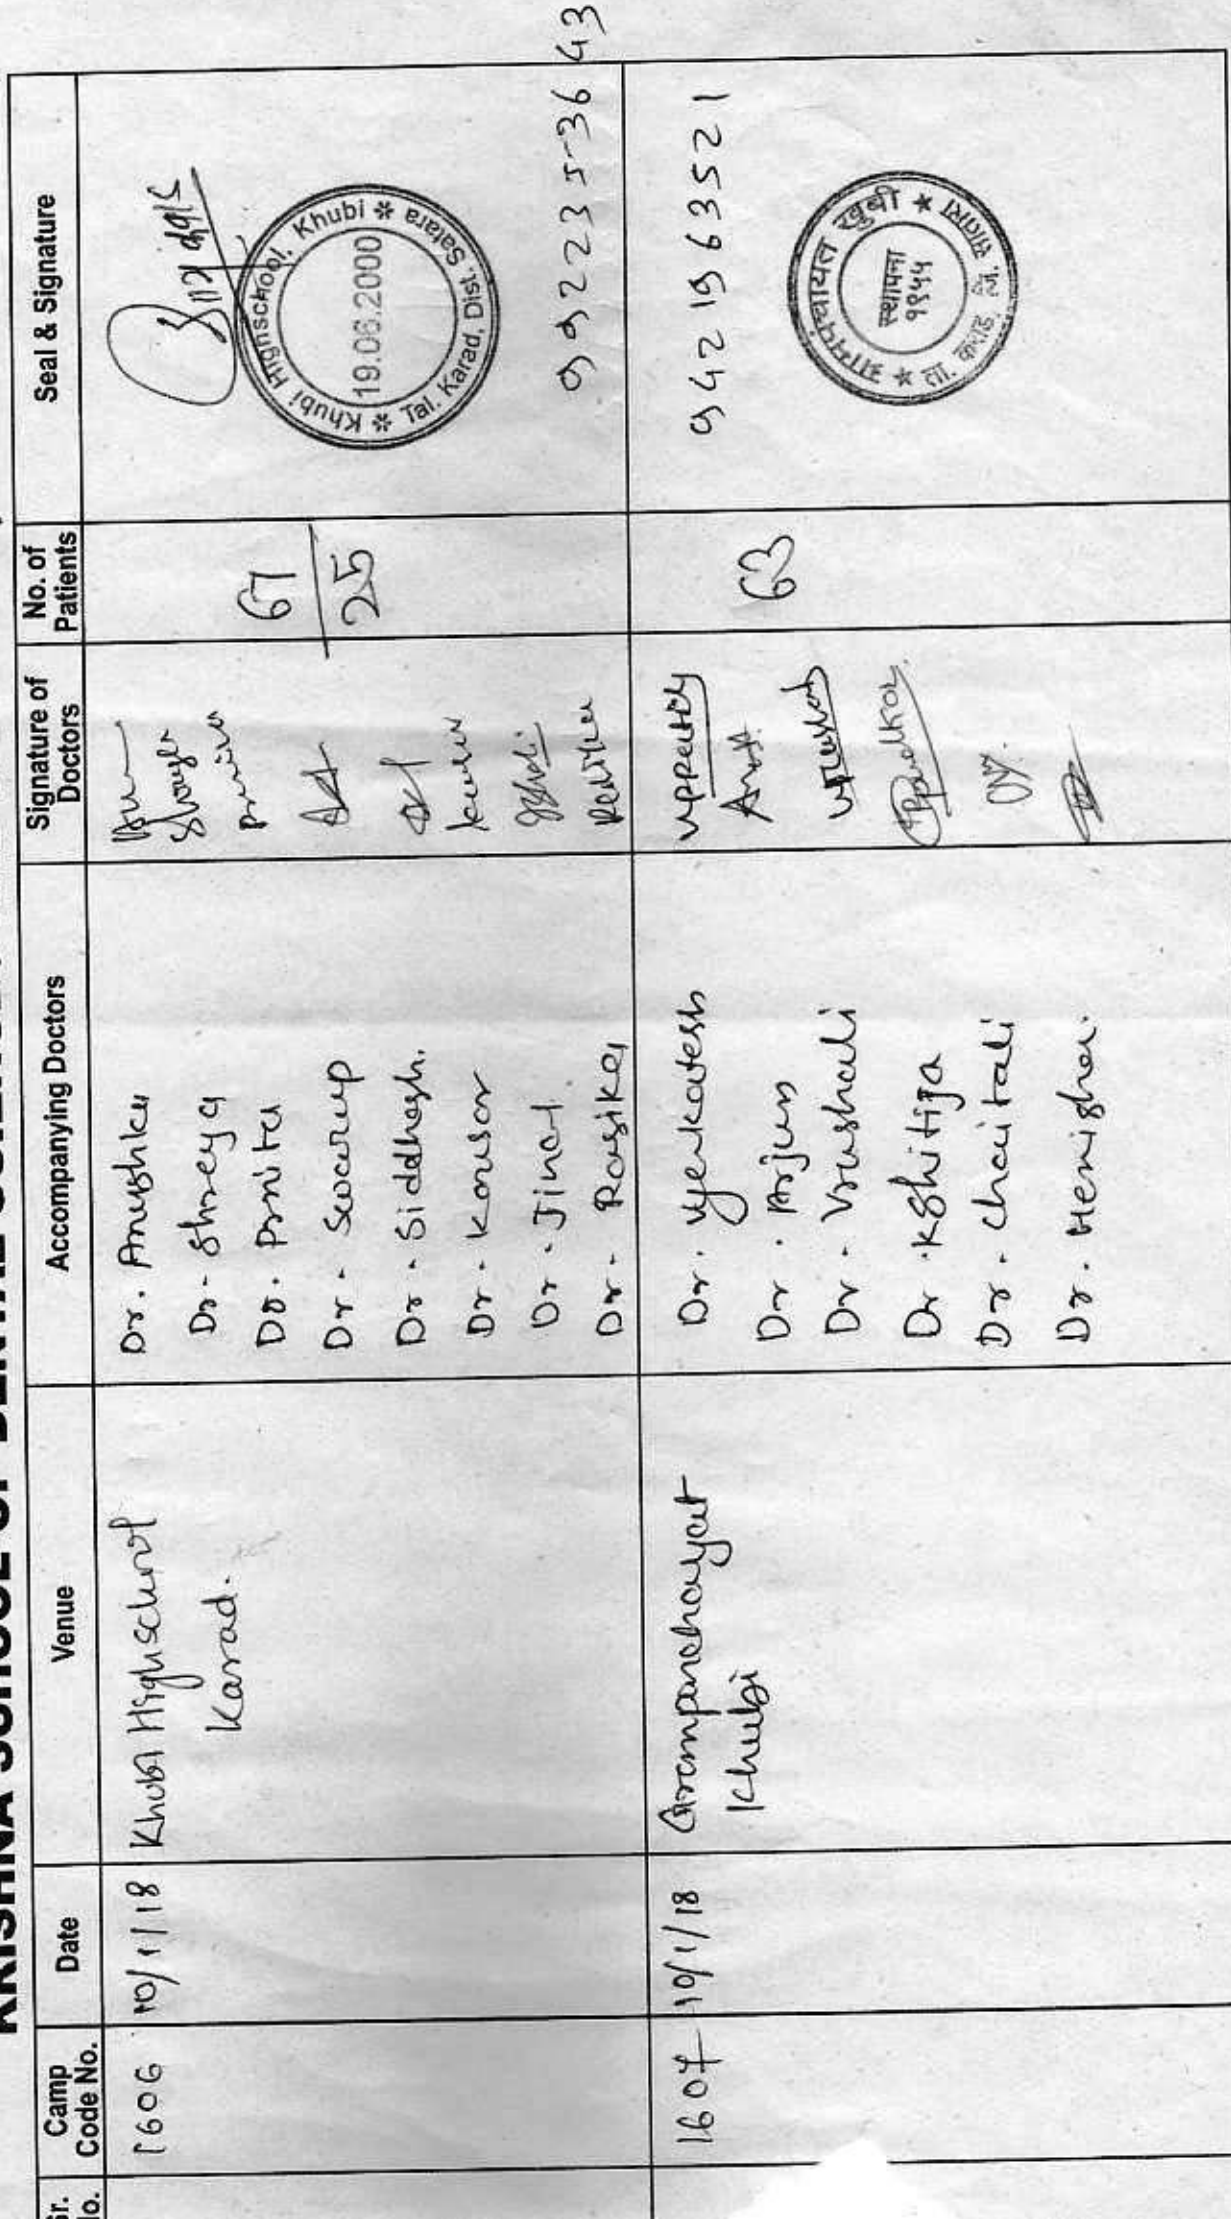 KRISHNA SCHOOL OF DENTAL
Sr. No.
Camp Code No.
Date
Venue
Accompanying Doctors
Signature of Doctors
No. of Patients
Seal & Signature
1606
10/1/18
Khubi Highschool
Karad.
Dr. Anushka
Dr. Shreya
Dr. Pranita
Dr. Swarup
Dr. Siddhesh.
Dr. Kausar
Dr. Jinat
Dr. Rasika
67
25
Khubi Highschool, Khubi
19.06.2000
Tal. Karad, Dist. Satara
9922353643
1607
10/1/18
Grampanchayat
Khubi
Dr. Vyenkatesh
Dr. Arjun
Dr. Vrushali
Dr. Kshitija
Dr. Chaitali
Dr. Manisha.
63
9421963521
ग्रामपंचायत खुबी
स्थापना
१९५५
ता. कराड, जि. सातारा